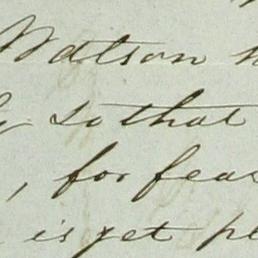 Watson
so that
, for fear
is yet